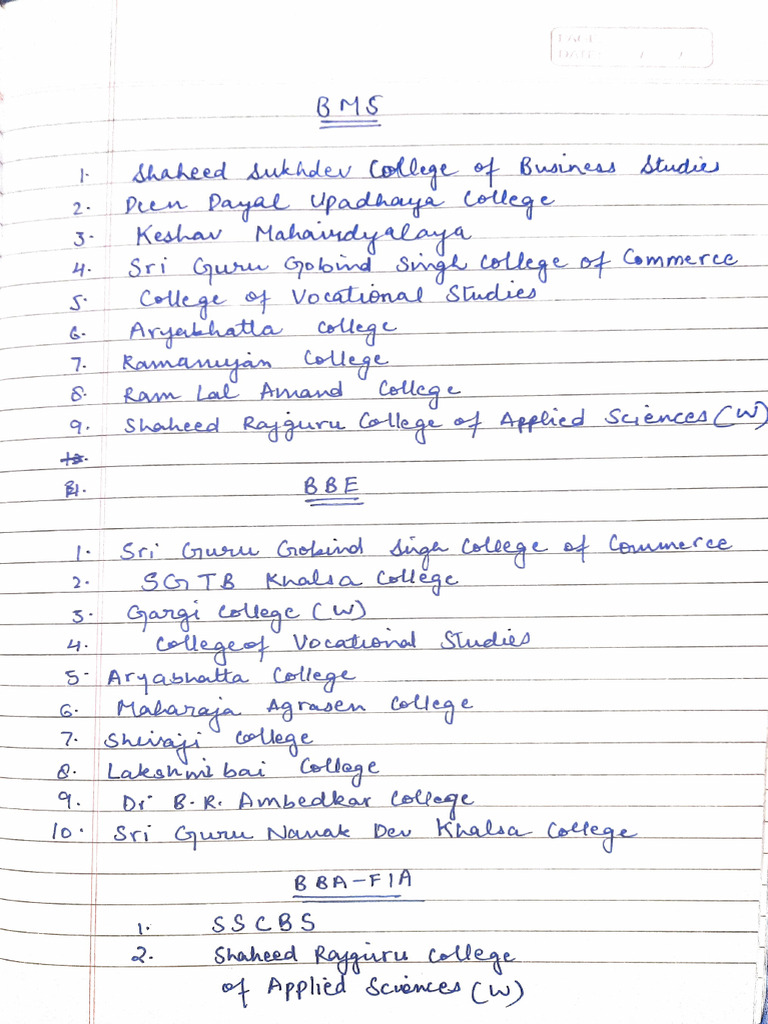 PAGE
DATE
BMS
1. Shaheed Sukhdev College of Business Studies
2. Deen Dayal Upadhaya College
3. Keshav Mahavidyalaya
4. Sri Guru Gobind Singh College of Commerce
5. College of Vocational Studies
6. Aryabhatta College
7. Ramanujan College
8. Ram Lal Anand College
9. Shaheed Rajguru College of Applied Sciences (W)
10.
BBE
1. Sri Guru Gobind Singh College of Commerce
2. SGTB Khalsa College
3. Gargi College (W)
4. College of Vocational Studies
5. Aryabhatta College
6. Maharaja Agrasen College
7. Shivaji College
8. Lakshmibai College
9. Dr B.R. Ambedkar College
10. Sri Guru Nanak Dev Khalsa College
BBA-FIA
1. SSCBS
2. Shaheed Rajguru College
of Applied Sciences (W)